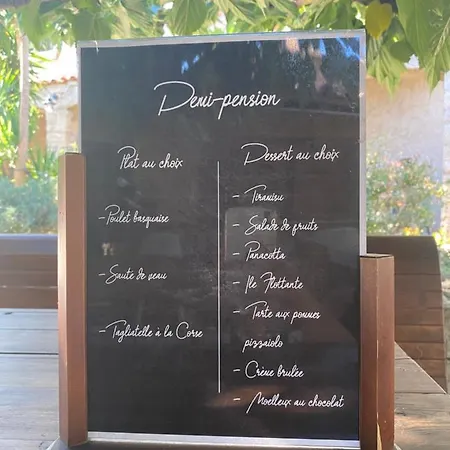 Demi-pension
Plat au choix
- Poulet basquaise
- Saute de veau
- Tagliatelle à la Corse
Dessert au choix
- Tiramisu
- Salade de fruits
- Panacotta
- Ile Flottante
- Tarte aux pommes
pizzaiolo
- Crème brulée
- Moelleux au chocolat